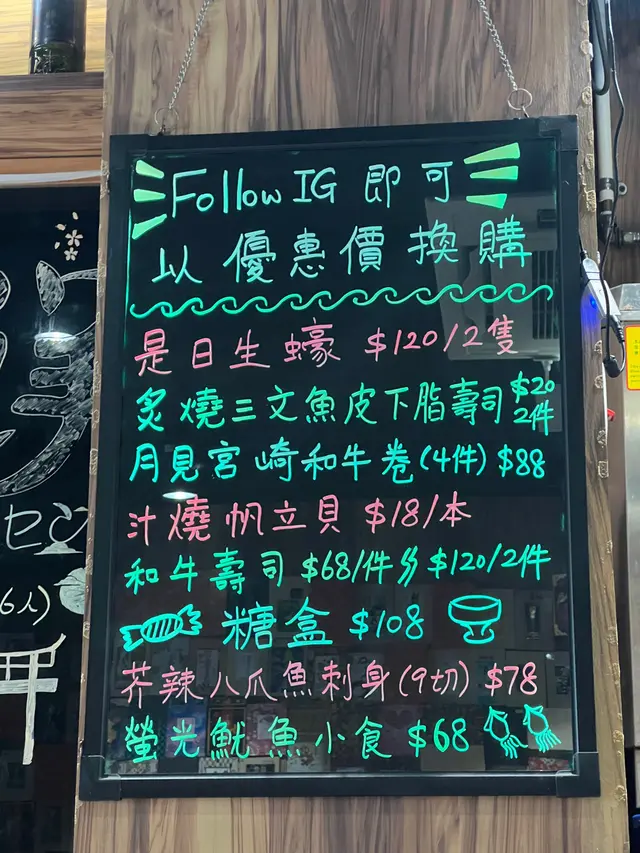 Follow IG 即可
以優惠價換購
是日生蠔 $120/2隻
炙燒三文魚皮下脂壽司 $20 2件
月見宮崎和牛卷(4件) $88
汁燒帆立貝 $18/本
和牛壽司 $68/件 $120/2件
糖盒 $108
芥辣八爪魚刺身(9切) $78
螢光魷魚小食 $68
セン
6人)